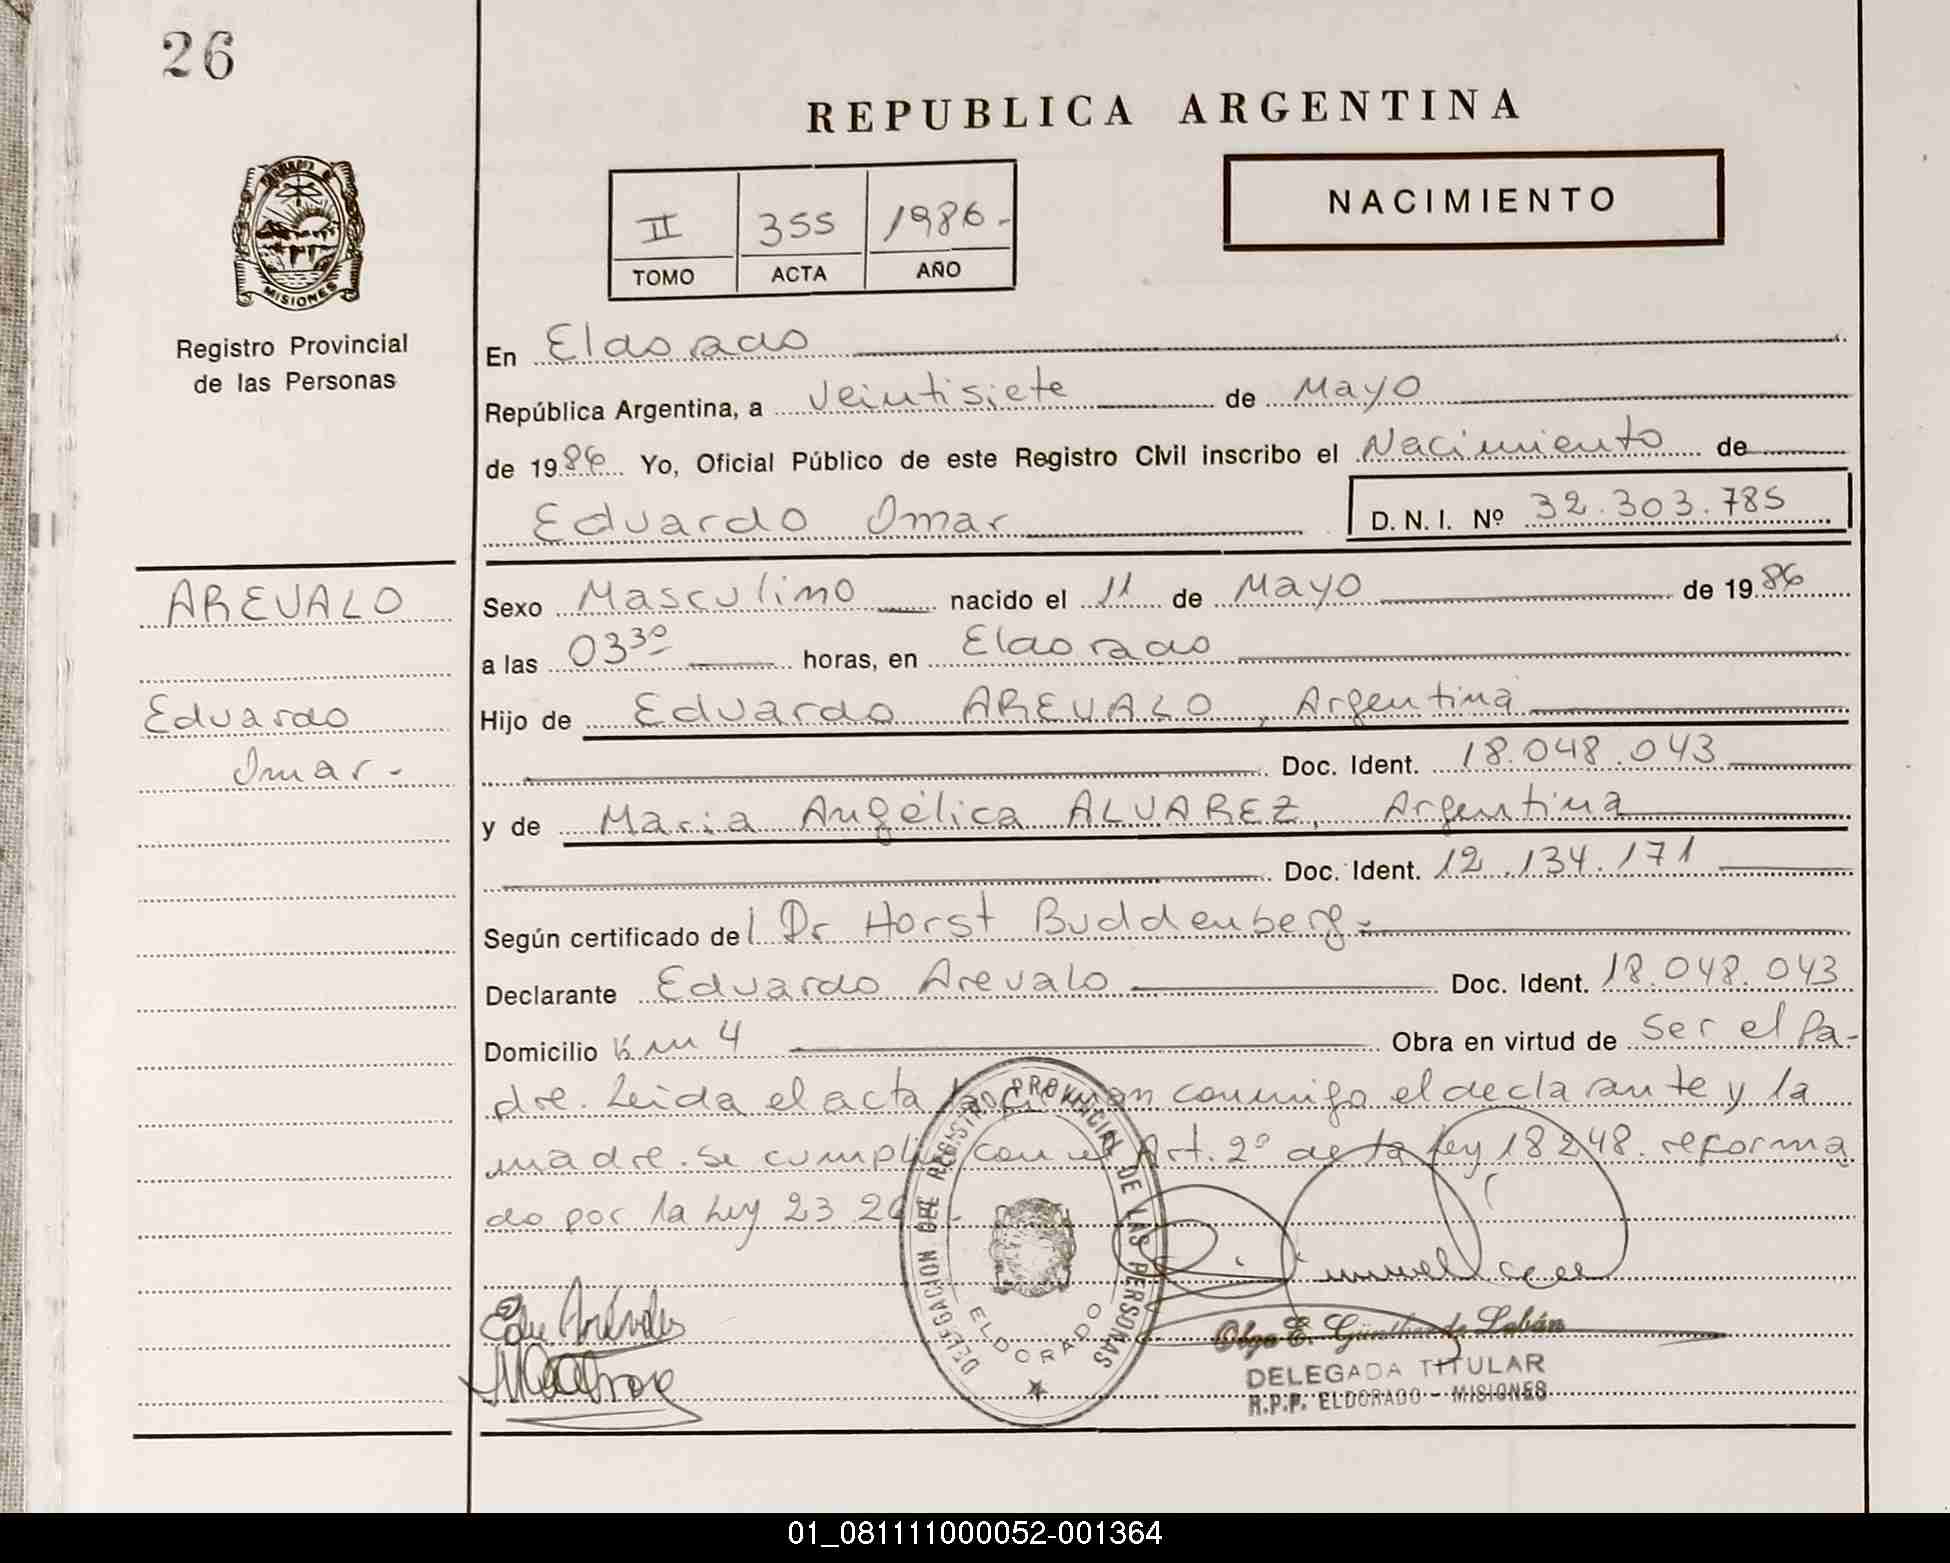 26
REPUBLICA ARGENTINA
NACIMIENTO
II 355 1986.-
TOMO ACTA AÑO
MISIONES
Registro Provincial
de las Personas
En Eldorado
República Argentina, a Veintisiete de Mayo
de 1986 Yo, Oficial Público de este Registro Civil inscribo el Nacimiento de
Eduardo Omar D. N. I. Nº 32.303.785
AREVALO
Eduardo
Omar.-
Sexo Masculino nacido el 11 de Mayo de 1986
a las 03³⁰ horas, en Eldorado
Hijo de Eduardo AREVALO, Argentina
Doc. Ident. 18.048.043
y de Maria Angélica ALVAREZ, Argentina
Doc. Ident. 12.134.171
Según certificado del Dr Horst Buddenberg.-
Declarante Eduardo Arevalo Doc. Ident. 18.048.043
Domicilio Km 4 Obra en virtud de ser el Pa-
dre. Leida el acta conmigo el declarante y la
madre. se cumplió con el Art. 2º de la Ley 18248. reforma
do por la Ley 23
DELEGACION DEL REGISTRO PROVINCIAL DE LAS PERSONAS
ELDORADO
Olga E. Günther de Labán
DELEGADA TITULAR
R.P.P. ELDORADO - MISIONES
01_081111000052-001364